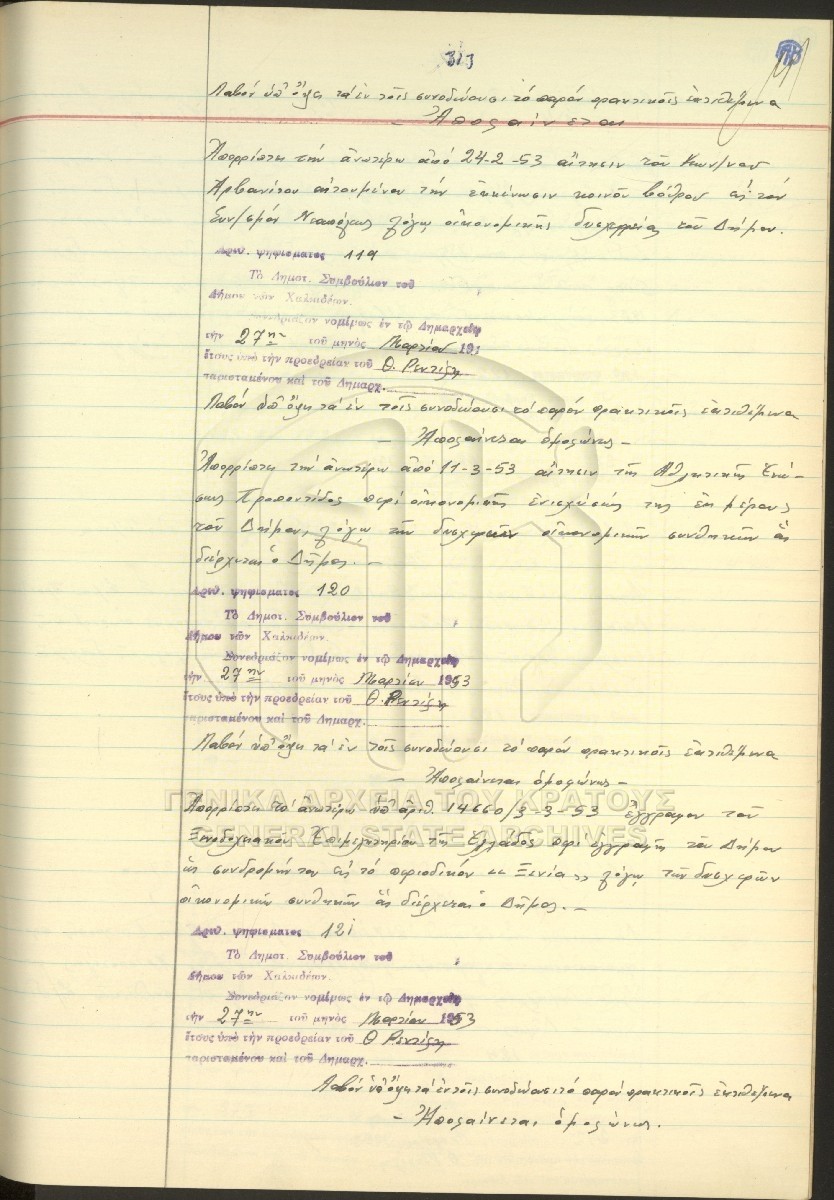 313
Λαβόν ὑπ' ὄψει τά ἐν τοῖς συνοδεύουσι τό παρόν πρακτικοῖς ἐκτιθέμενα
– Ἀποφαίνεται
Ἀπορρίπτει τήν ἀνωτέρω ἀπό 24-2-53 αἴτησιν τοῦ Κων/νου
Ἀρβανίτου αἰτουμένου τήν ἐκκένωσιν κοινοῦ βόθρου εἰς τόν
Συν/σμόν Νεαπόλεως λόγῳ οἰκονομικῆς δυσχερείας τοῦ Δήμου.
Ἀριθ. ψηφίσματος 119
Τὸ Δημοτ. Συμβούλιον τοῦ
Δήμου τῶν Χαλκιδέων.
Συνεδριάζον νομίμως ἐν τῷ Δημαρχείῳ
τὴν 27ην τοῦ μηνὸς Μαρτίου 195
ἔτους ὑπὸ τὴν προεδρείαν τοῦ Θ. Ρεντίζη
παρισταμένου καὶ τοῦ Δημαρχ.
Λαβόν ὑπ' ὄψη τά ἐν τοῖς συνοδεύουσι τό παρόν πρακτικοῖς ἐκτιθέμενα
– Ἀποφαίνεται ὁμοφώνως –
Ἀπορρίπτει τήν ἀνωτέρω ἀπό 11-3-53 αἴτησιν τῆς Ἀθλητικῆς Ἑνώ-
σεως Προποντίδος περί οἰκονομικῆς ἐνισχύσεώς της ἐκ μέρους
τοῦ Δήμου, λόγῳ τῶν δυσχερῶν οἰκονομικῶν συνθηκῶν ἅς
διέρχεται ὁ Δῆμος. –
Ἀριθ. ψηφίσματος 120
Τὸ Δημοτ. Συμβούλιον τοῦ
Δήμου τῶν Χαλκιδέων.
Συνεδριάζον νομίμως ἐν τῷ Δημαρχείῳ
τὴν 27ην τοῦ μηνὸς Μαρτίου 1953
ἔτους ὑπὸ τὴν προεδρείαν τοῦ Θ. Ρεντίζη
παρισταμένου καὶ τοῦ Δημαρχ.
Λαβόν ὑπ' ὄψη τά ἐν τοῖς συνοδεύουσι τό παρόν πρακτικοῖς ἐκτιθέμενα
– Ἀποφαίνεται ὁμοφώνως –
ΓΕΝΙΚΑ ΑΡΧΕΙΑ ΤΟΥ ΚΡΑΤΟΥΣ
Ἀπορρίπτει τό ἀνωτέρω ὑπ' ἀριθ. 14660/3-3-53 ἔγγραφον τοῦ
GENERAL STATE ARCHIVES
Ξενοδοχειακοῦ Ἐπιμελητηρίου τῆς Ἑλλάδος περί ἐγγραφῆς τοῦ Δήμου
ὡς συνδρομητοῦ εἰς τό περιοδικόν «Ξενία» λόγῳ τῶν δυσχερῶν
οἰκονομικῶν συνθηκῶν ἅς διέρχεται ὁ Δῆμος. –
Ἀριθ. ψηφίσματος 121
Τὸ Δημοτ. Συμβούλιον τοῦ
Δήμου τῶν Χαλκιδέων.
Συνεδριάζον νομίμως ἐν τῷ Δημαρχείῳ
τὴν 27ην τοῦ μηνὸς Μαρτίου 1953
ἔτους ὑπὸ τὴν προεδρείαν τοῦ Θ. Ρεντίζη
παρισταμένου καὶ τοῦ Δημαρχ.
Λαβόν ὑπ' ὄψη τά ἐν τοῖς συνοδεύουσι τό παρόν πρακτικοῖς ἐκτιθέμενα
– Ἀποφαίνεται ὁμοφώνως.